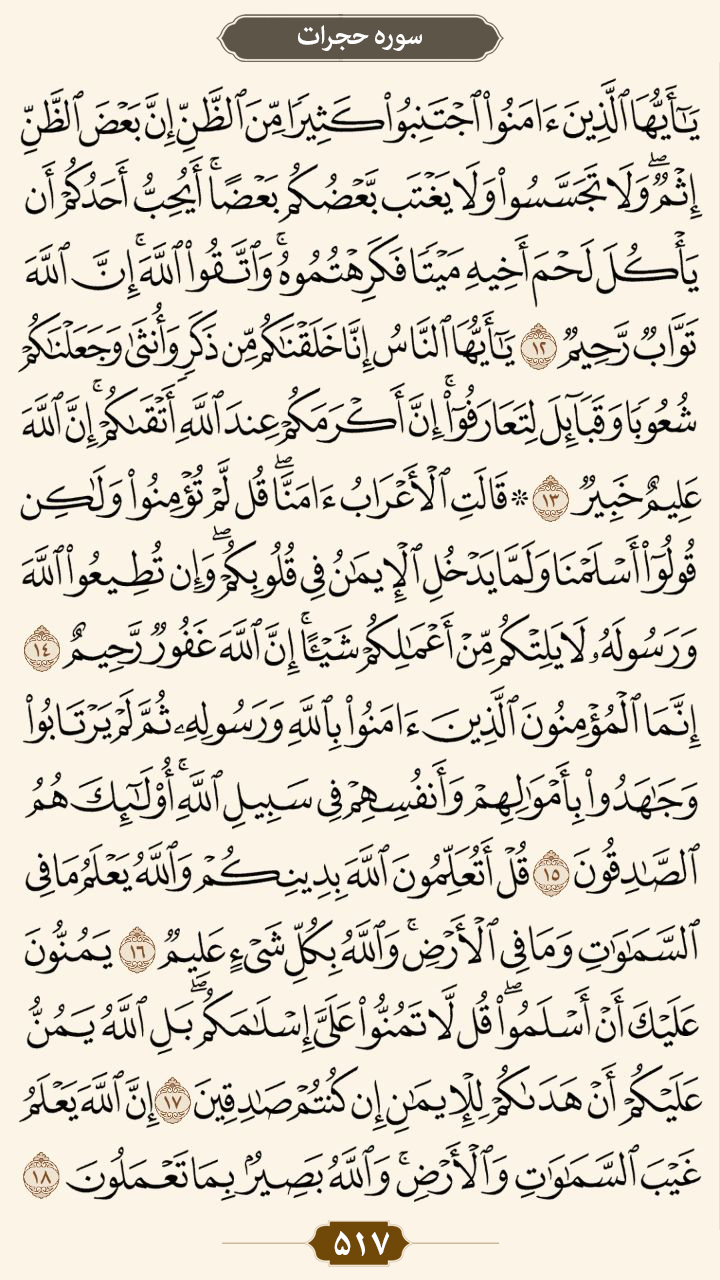 سوره حجرات
يَـٰٓأَيُّهَا ٱلَّذِينَ ءَامَنُوا۟ ٱجْتَنِبُوا۟ كَثِيرًا مِّنَ ٱلظَّنِّ إِنَّ بَعْضَ ٱلظَّنِّ
إِثْمٌ ۖ وَلَا تَجَسَّسُوا۟ وَلَا يَغْتَب بَّعْضُكُم بَعْضًا ۚ أَيُحِبُّ أَحَدُكُمْ أَن
يَأْكُلَ لَحْمَ أَخِيهِ مَيْتًا فَكَرِهْتُمُوهُ ۚ وَٱتَّقُوا۟ ٱللَّهَ ۚ إِنَّ ٱللَّهَ
تَوَّابٌ رَّحِيمٌ ١٢ يَـٰٓأَيُّهَا ٱلنَّاسُ إِنَّا خَلَقْنَـٰكُم مِّن ذَكَرٍ وَأُنثَىٰ وَجَعَلْنَـٰكُمْ
شُعُوبًا وَقَبَآئِلَ لِتَعَارَفُوٓا۟ ۚ إِنَّ أَكْرَمَكُمْ عِندَ ٱللَّهِ أَتْقَىٰكُمْ ۚ إِنَّ ٱللَّهَ
عَلِيمٌ خَبِيرٌ ١٣ ۞ قَالَتِ ٱلْأَعْرَابُ ءَامَنَّا ۖ قُل لَّمْ تُؤْمِنُوا۟ وَلَـٰكِن
قُولُوٓا۟ أَسْلَمْنَا وَلَمَّا يَدْخُلِ ٱلْإِيمَـٰنُ فِى قُلُوبِكُمْ ۖ وَإِن تُطِيعُوا۟ ٱللَّهَ
وَرَسُولَهُۥ لَا يَلِتْكُم مِّنْ أَعْمَـٰلِكُمْ شَيْـًٔا ۚ إِنَّ ٱللَّهَ غَفُورٌ رَّحِيمٌ ١٤
إِنَّمَا ٱلْمُؤْمِنُونَ ٱلَّذِينَ ءَامَنُوا۟ بِٱللَّهِ وَرَسُولِهِۦ ثُمَّ لَمْ يَرْتَابُوا۟
وَجَـٰهَدُوا۟ بِأَمْوَٰلِهِمْ وَأَنفُسِهِمْ فِى سَبِيلِ ٱللَّهِ ۚ أُو۟لَـٰٓئِكَ هُمُ
ٱلصَّـٰدِقُونَ ١٥ قُلْ أَتُعَلِّمُونَ ٱللَّهَ بِدِينِكُمْ وَٱللَّهُ يَعْلَمُ مَا فِى
ٱلسَّمَـٰوَٰتِ وَمَا فِى ٱلْأَرْضِ ۚ وَٱللَّهُ بِكُلِّ شَىْءٍ عَلِيمٌ ١٦ يَمُنُّونَ
عَلَيْكَ أَنْ أَسْلَمُوا۟ ۖ قُل لَّا تَمُنُّوا۟ عَلَىَّ إِسْلَـٰمَكُم ۖ بَلِ ٱللَّهُ يَمُنُّ
عَلَيْكُمْ أَنْ هَدَىٰكُمْ لِلْإِيمَـٰنِ إِن كُنتُمْ صَـٰدِقِينَ ١٧ إِنَّ ٱللَّهَ يَعْلَمُ
غَيْبَ ٱلسَّمَـٰوَٰتِ وَٱلْأَرْضِ ۚ وَٱللَّهُ بَصِيرٌۢ بِمَا تَعْمَلُونَ ١٨
۵۱۷